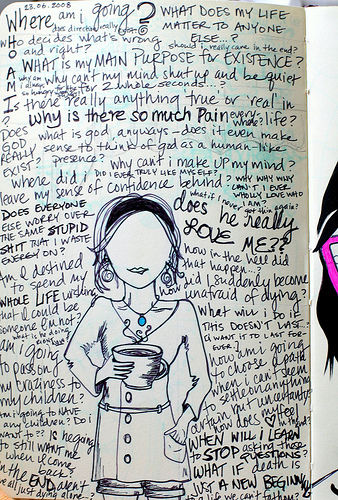 23.06.2008
Where am i going?
WHAT DOES MY LIFE
MATTER TO ANYONE
ELSE...?
does direction really exist?
WHO decides what's wrong
and right?
should i really care in the end?
WHO AM I?
WHAT is my MAIN PURPOSE for EXISTENCE?
why am i always so hungry
why can't my mind shut up and be quiet
for 2 whole seconds...?
Is there really anything 'true' or 'real' in
life?
why is there so much Pain everywhere?
DOES GOD REALLY EXIST?
what is god, anyways - does it even make
sense to think of god as a human-like
presence?
why can't i make up my mind?
where did i
leave my sense of confidence behind?
DID I EVER TRULY LIKE MYSELF?
WHY WHY WHY
CAN'T I EVER
WHOLLY LOVE WHO
I AM?
DOES EVERYONE
ELSE WORRY OVER
THE SAME STUPID
SHIT THAT I WASTE
ENERGY ON?
does he really
LOVE ME??
how in the hell did
that happen...?
Am i destined
to spend my
WHOLE LIFE wishing
that i could be
someone i'm not?
how did i suddenly become
unafraid of dying?
what will i do if
THIS DOESN'T LAST..?
(I WANT IT TO LAST FOREVER!)
am i going
to pass on
my craziness to
my children?
am i going
to choose a path
when i can't seem
to settle on anything
certain but uncertainty?
am i going to HAVE
any children? Do i
want to??
how does my ♡ feel
WHEN WILL i LEARN
to STOP asking these
QUESTIONS?
is he going
to still want me
when i come
back?
in the END aren't
we all just dying alone..?
WHAT IF death is
JUST A NEW BEGINNING
to a life we can't fathom?